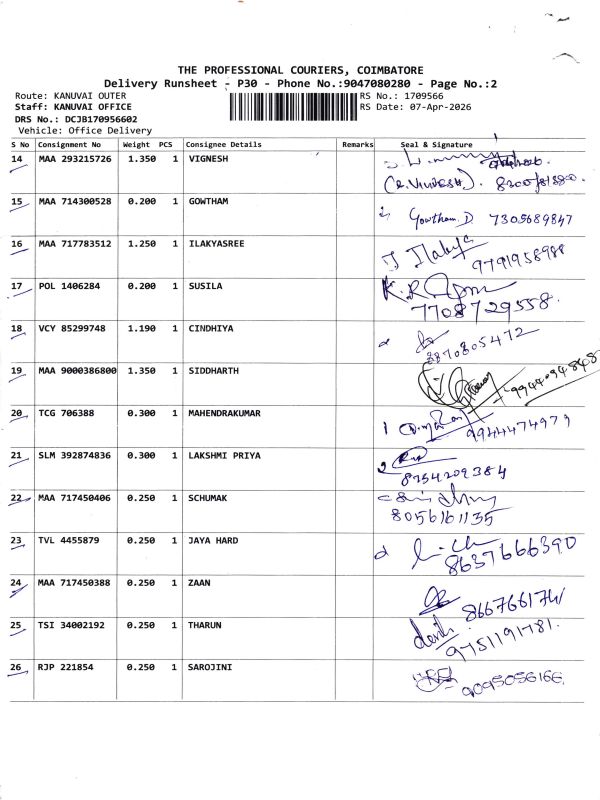 THE PROFESSIONAL COURIERS, COIMBATORE
Delivery Runsheet - P30 - Phone No.:9047080280 - Page No.:2
Route: KANUVAI OUTER
RS No.: 1709566
Staff: KANUVAI OFFICE
RS Date: 07-Apr-2026
DRS No.: DCJB170956602
Vehicle: Office Delivery
S No Consignment No Weight PCS Consignee Details Remarks Seal & Signature
14 MAA 293215726 1.350 1 VIGNESH
15 MAA 714300528 0.200 1 GOWTHAM Gowtham.D 7305689847
16 MAA 717783512 1.250 1 ILAKYASREE J Ilakya 9791958988
17 POL 1406284 0.200 1 SUSILA K.R 7708729558.
18 VCY 85299748 1.190 1 CINDHIYA 8870805472
19 MAA 9000386800 1.350 1 SIDDHARTH
20 TCG 706388 0.300 1 MAHENDRAKUMAR 9944474979
21 SLM 392874836 0.300 1 LAKSHMI PRIYA 8754209384
22 MAA 717450406 0.250 1 SCHUMAK 8056161135
23 TVL 4455879 0.250 1 JAYA HARD 8637666390
24 MAA 717450388 0.250 1 ZAAN
25 TSI 34002192 0.250 1 THARUN 9751191781.
26 RJP 221854 0.250 1 SAROJINI 9095056166.